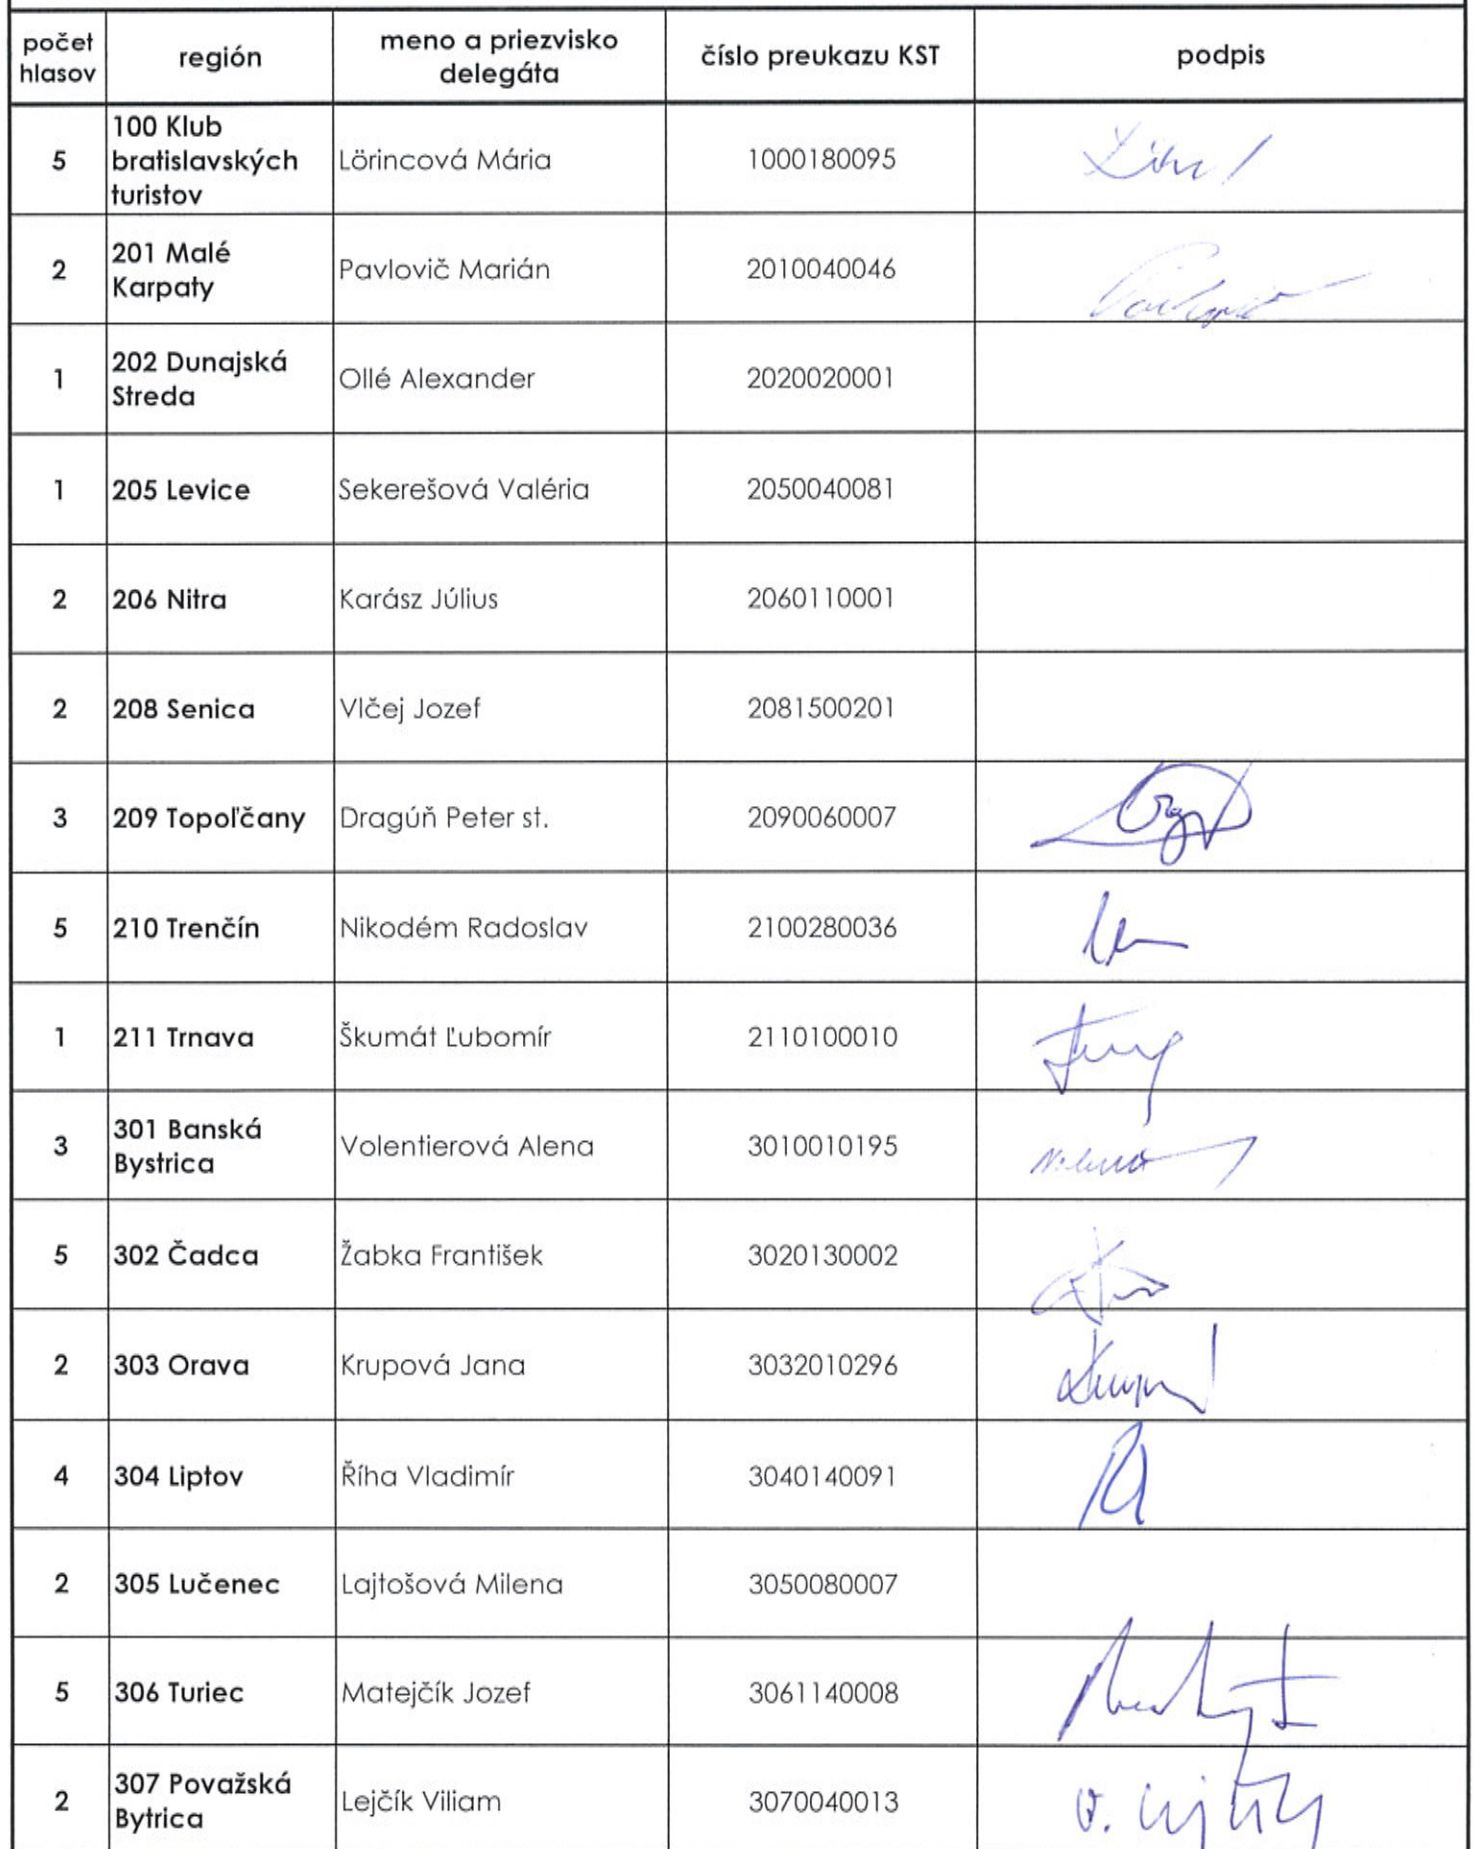 počet hlasov región meno a priezvisko delegáta číslo preukazu KST podpis
5 100 Klub bratislavských turistov Lörincová Mária 1000180095
2 201 Malé Karpaty Pavlovič Marián 2010040046
1 202 Dunajská Streda Ollé Alexander 2020020001
1 205 Levice Sekerešová Valéria 2050040081
2 206 Nitra Karász Július 2060110001
2 208 Senica Vlčej Jozef 2081500201
3 209 Topoľčany Dragúň Peter st. 2090060007
5 210 Trenčín Nikodém Radoslav 2100280036
1 211 Trnava Škumát Ľubomír 2110100010
3 301 Banská Bystrica Volentierová Alena 3010010195
5 302 Čadca Žabka František 3020130002
2 303 Orava Krupová Jana 3032010296
4 304 Liptov Říha Vladimír 3040140091
2 305 Lučenec Lajtošová Milena 3050080007
5 306 Turiec Matejčík Jozef 3061140008
2 307 Považská Bytrica Lejčík Viliam 3070040013